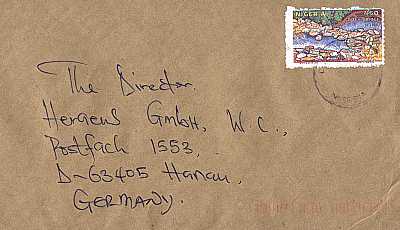 NIGERIA ₦50
The Director
Heraeus GmbH, W.C.,
Postfach 1553,
D-63405 Hanau,
GERMANY.